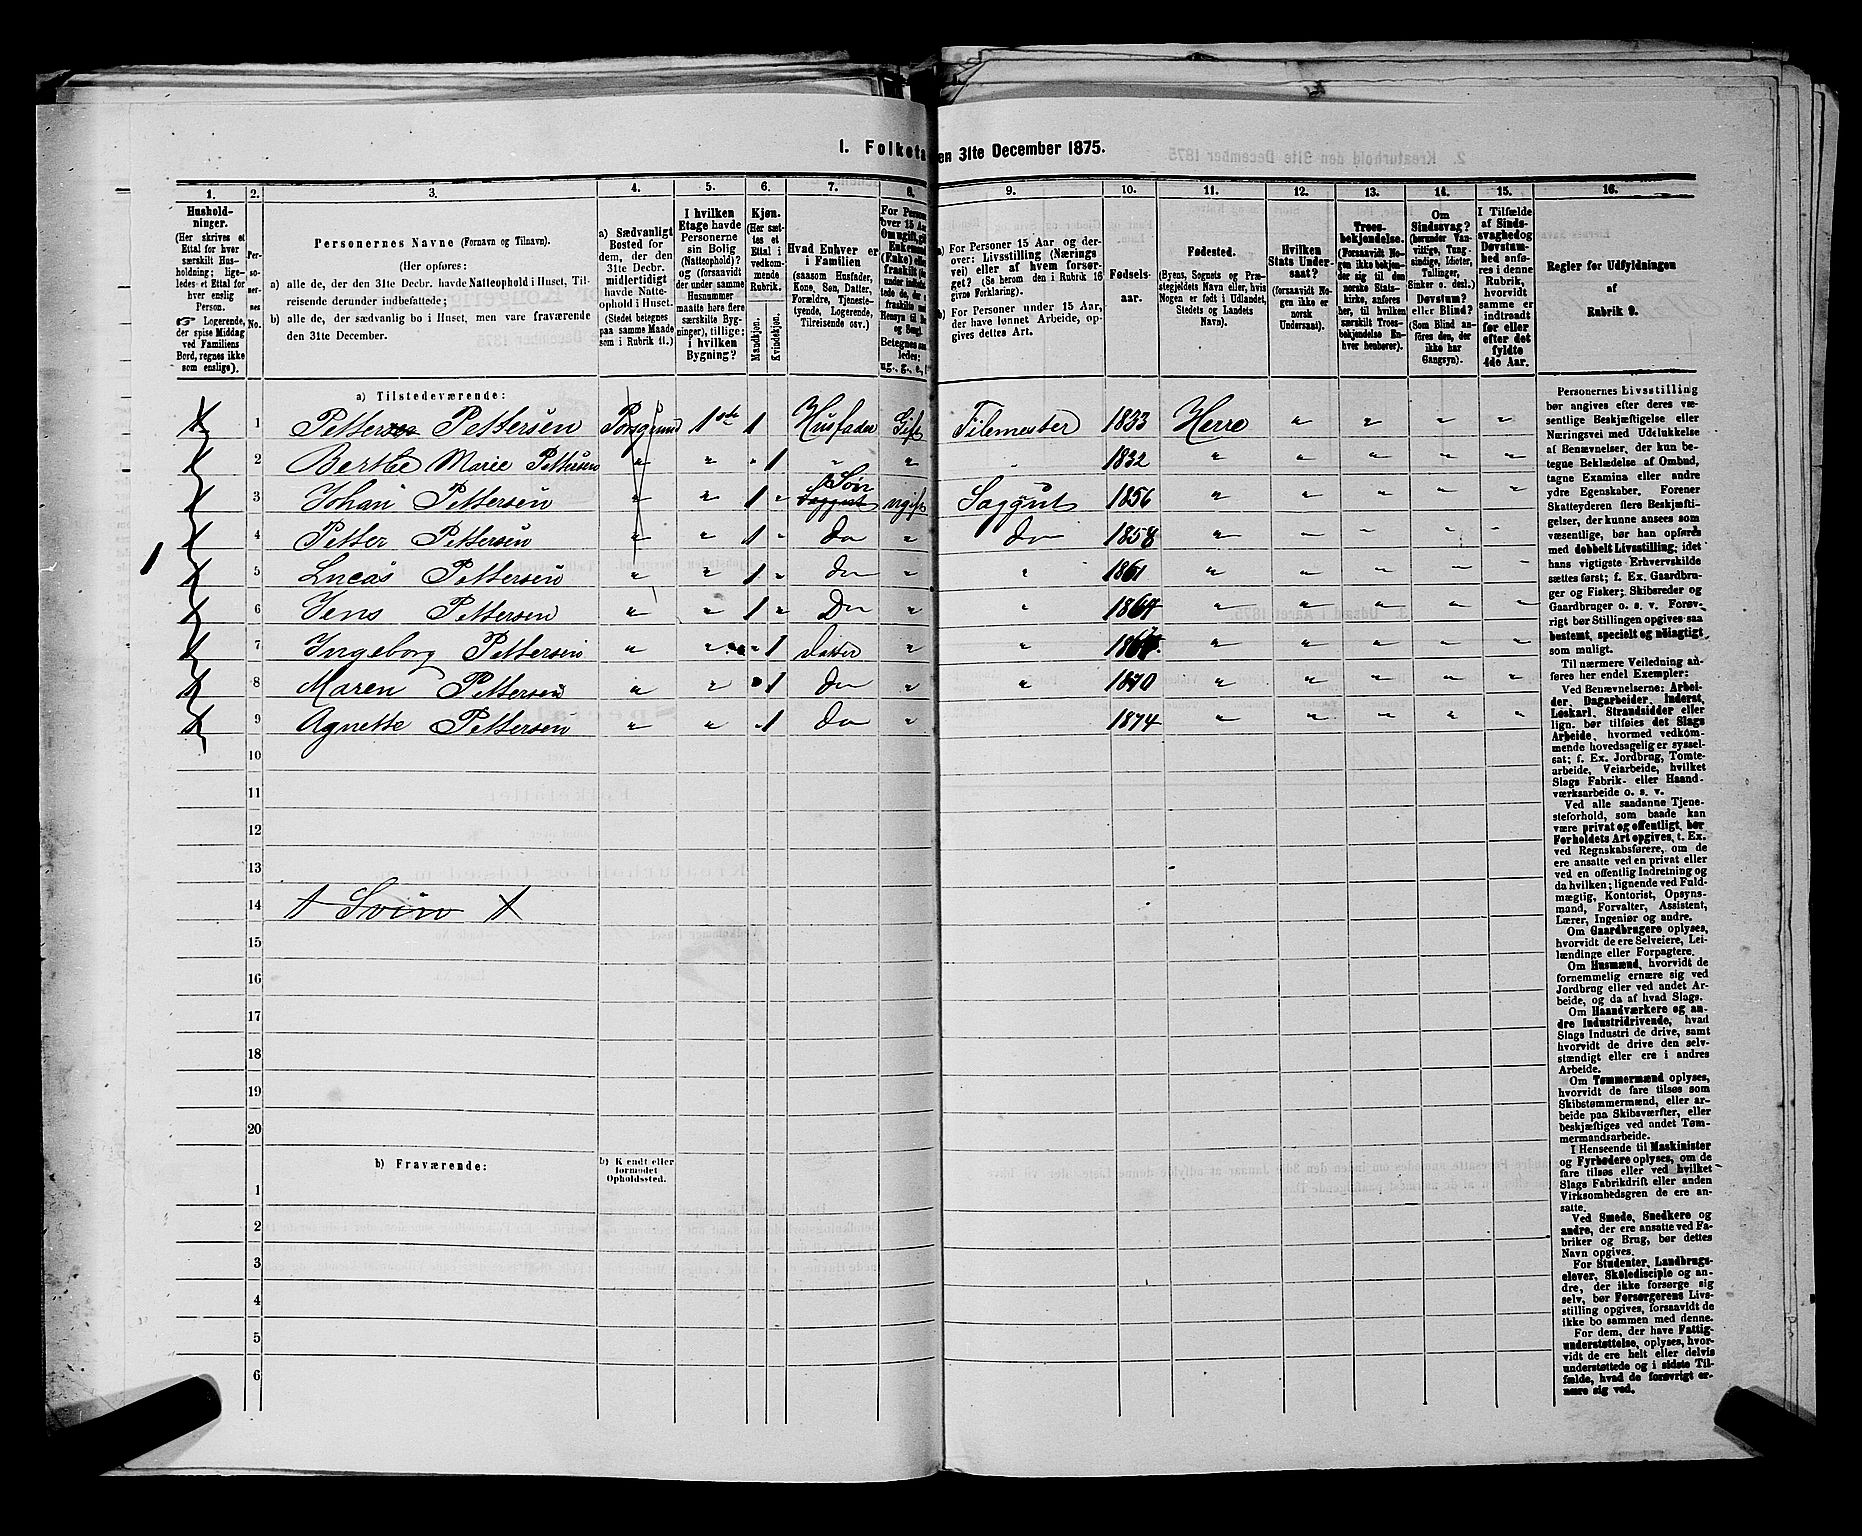 1. Folketæ
en 31te December 1875.
1. 2. 3. 4. 5. 6. 7. 8. 9. 10. 11. 12. 13. 14. 15. 16.
Hushold-
ninger.
(Her skrives et
Ettal for hver
særskilt Hus-
holdning; lige-
ledes et Ettal for
hver enslig
Person.
☞ Logerende,
der spise Middag
ved Familiens
Bord, regnes ikke
som enslige).
Per-
so-
ner-
nes
No.
Personernes Navne (Fornavn og Tilnavn).
(Her opføres:
a) alle de, der den 31te Decbr. havde Natteophold i Huset, Til-
reisende derunder indbefattede;
b) alle de, der sædvanlig bo i Huset, men vare fraværende
den 31te December.
a) Sædvanligt
Bosted for
dem, der den
31te Decbr.
midlertidigt
havde Natte-
ophold i Huset.
(Stedet betegnes
paa samme Maade
som i Rubrik 11.)
I hvilken
Etage havde
Personerne
sin Bolig
(Natteophold)?
og (forsaavidt
der under samme
Husnummer
maatte høre flere
særskilte Byg-
ninger), tillige:
i hvilken
Bygning?
Kjøn.
(Her sæt-
tes et
Ettal i
vedkom-
mende
Rubrik.
Mandkjøn.
Kvindekjøn.
Hvad Enhver er
i Familien
(saasom Husfader,
Kone, Søn, Datter,
Forældre, Tjeneste-
tyende, Logerende,
Tilreisende osv.)
For Person
over 15 Aar
Om ugift, gi
Enkemand
(Enke) elle
fraskilt
Betegnes saa
ledes:
ug., g., e.,
a) For Personer 15 Aar og der-
over: Livsstilling (Nærings
vei) eller af hvem forsør-
get? (Se herom den i Rubrik 16
givne Forklaring).
b) For Personer under 15 Aar,
der have lønnet Arbeide, op-
gives dettes Art.
Fødsels-
aar.
Fødested.
(Byens, Sognets og Præ-
stegjeldets Navn eller, hvis
Nogen er født i Udlandet,
Stedets og Landets
Navn).
Hvilken
Stats Under-
saat?
(forsaavidt No-
gen ikke er
norsk
Undersaat).
Troes-
bekjendelse.
(Forsaavidt No-
gen ikke bekjen-
der sig til den
norske Stats-
kirke, anføres
her, til hvilken
særskilt Troes-
bekjendelse En-
hver henhører).
Om
Sindssvag?
(herunder Van-
vittige, Tung-
sindige, Idioter,
Tullinger,
Sinker o. desl.)
Døvstum?
eller Blind?
(Som Blind an-
føres den, der
ikke har
Gangsyn).
I Tilfælde
af Sinds-
svaghed og
Døvstum-
hed anfø-
res i denne
Rubrik,
hvorvidt
samme er
indtraadt
før eller
efter det
fyldte
4de Aar.
Regler for Udfyldningen
af
Rubrik 9.
a) Tilstedeværende:
1 Petter Pettersen Porsgrund 1ste 1 Husfader Gift Filemester 1833 Herre " " " "
2 Berthe Marie Pettersen " " " 1 " " " 1832 " " " " "
3 Johan Pettersen " " 1 " Søn ugift Saggut 1856 " " " " "
4 Petter Pettersen " " 1 " Do " Do 1858 " " " " "
5 Lucas Pettersen " " 1 " Do " " 1861 " " " " "
6 Jens Pettersen " " 1 " Do " " 1864 " " " " "
7 Ingeborg Pettersen " " " 1 Datter " " " " " " "
8 Maren Pettersen " " 1 Do " " 1870 " " " " "
9 Agnette Pettersen " " " 1 Do " 1874 " " " " "
10
11
12
13
14 1 Sviin 1
15
16
17
18
19
20
b) Fraværende:
b) Kjendt eller
formodet
Opholdssted.
1
2
3
4
5
6
Personernes Livsstilling
bør angives efter deres væ-
sentlige Beskjæftigelse eller
Næringsvei med Udelukkelse
af Benævnelser, der kun be-
tegne Beklædelse af Ombud,
tagne Examina eller andre
ydre Egenskaber. Forener
Skatteyderen flere Beskjæfti-
gelser, der kunne ansees som
væsentlige, bør han opføres
med dobbelt Livsstilling; idet
hans vigtigste Erhvervskilde
sættes først; f. Ex. Gaardbru-
ger og Fisker; Skibsreder og
Gaardbruger o. s. v. Forøv-
rigt bør Stillingen opgives saa
bestemt, specielt og nøiagtigt
som muligt.
Til nærmere Veiledning an-
føres her endel Exempler:
Ved Benævnelserne: Arbei-
der, Dagarbeider, Inderst,
Løskarl, Strandsidder eller
lign. bør tilføies det Slags
Arbeide, hvormed vedkom-
mende hovedsagelig er syssel-
sat; f. Ex. Jordbrug, Tomte-
arbeide, Veiarbeide, hvilket
Slags Fabrik- eller Haand-
værksarbeide o. s. v.
Ved alle saadanne Tjene-
steforhold, som baade kan
være privat og offentligt, bør
Forholdets Art opgives, t. Ex.
ved Regnskabsførere, om de
ere ansatte ved en privat eller
ved en offentlig Indretning og
da hvilken; lignende ved Fuld-
mægtig, Kontorist, Opsyns-
mand, Forvalter, Assistent,
Lærer, Ingeniør og andre.
Om Gaardbrugere oplyses,
hvorvidt de ere Selveiere, Lei-
lændinge eller Forpagtere.
Om Husmænd, hvorvidt de
fornemmelig ernære sig ved
Jordbrug eller ved andet Ar-
beide, og da af hvad Slags.
Om Haandværkere og an-
dre Industridrivende, hvad
Slags Industri de drive, samt
hvorvidt de drive den selv-
stændigt eller ere i andres
Arbeide.
Om Tømmermænd oplyses,
hvorvidt de fare tilsøs som
Skibstømmermænd, eller ar-
beide paa Skibsværfter, eller
beskjæftiges ved andet Tøm-
mermandsarbeide.
I Henseende til Maskinister
og Fyrbødere oplyses, om de
fare tilsøs eller ved hvilket
Slags Fabrikdrift eller anden
Virksomhedsgren de ere an-
satte.
Ved Smede, Snedkere og
andre, der ere ansatte ved Fa-
briker og Brug, bør dettes
Navn opgives.
For Studenter, Landbrugs-
elever, Skoledisciple og an-
dre, der ikke forsørge sig
selv, bør Forsørgerens Livs-
stilling opgives, forsaavidt de
ikke bo sammen med denne.
For dem, der have Fattig-
understøttelse, oplyses, hvor-
vidt de ere helt eller delvis
understøttede og i sidste Til-
fælde, hvad de forøvrigt er-
nære sig ved.